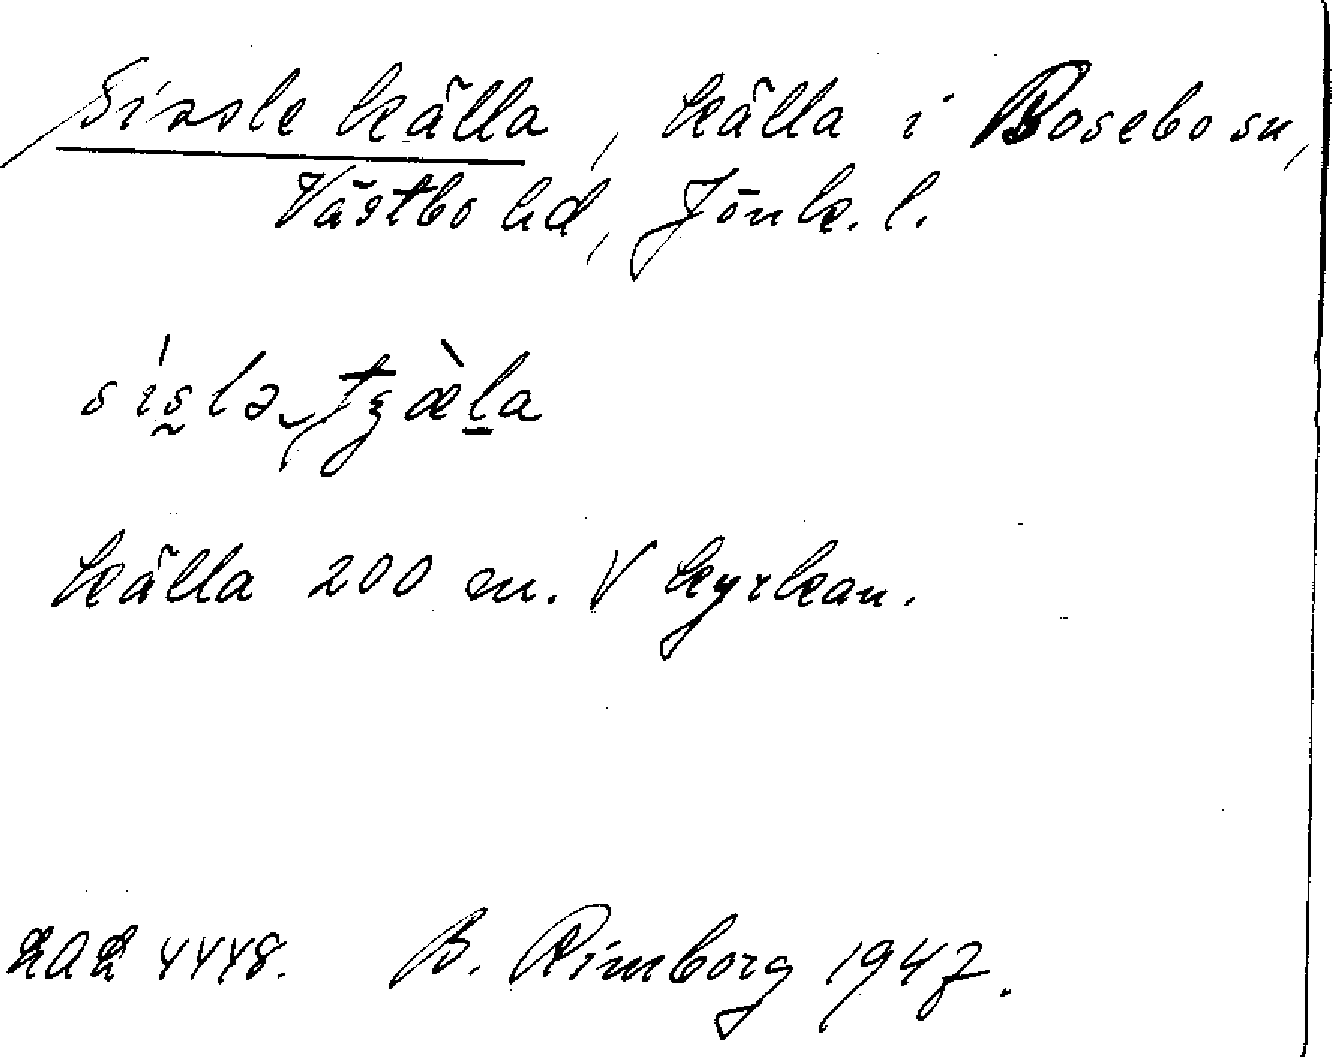 Sissle källa, källa i Bosebo sn,
Västbo hd, Jönk. l.
källa 200 m. V kyrkan.
4448. B. Rimborg 1947.